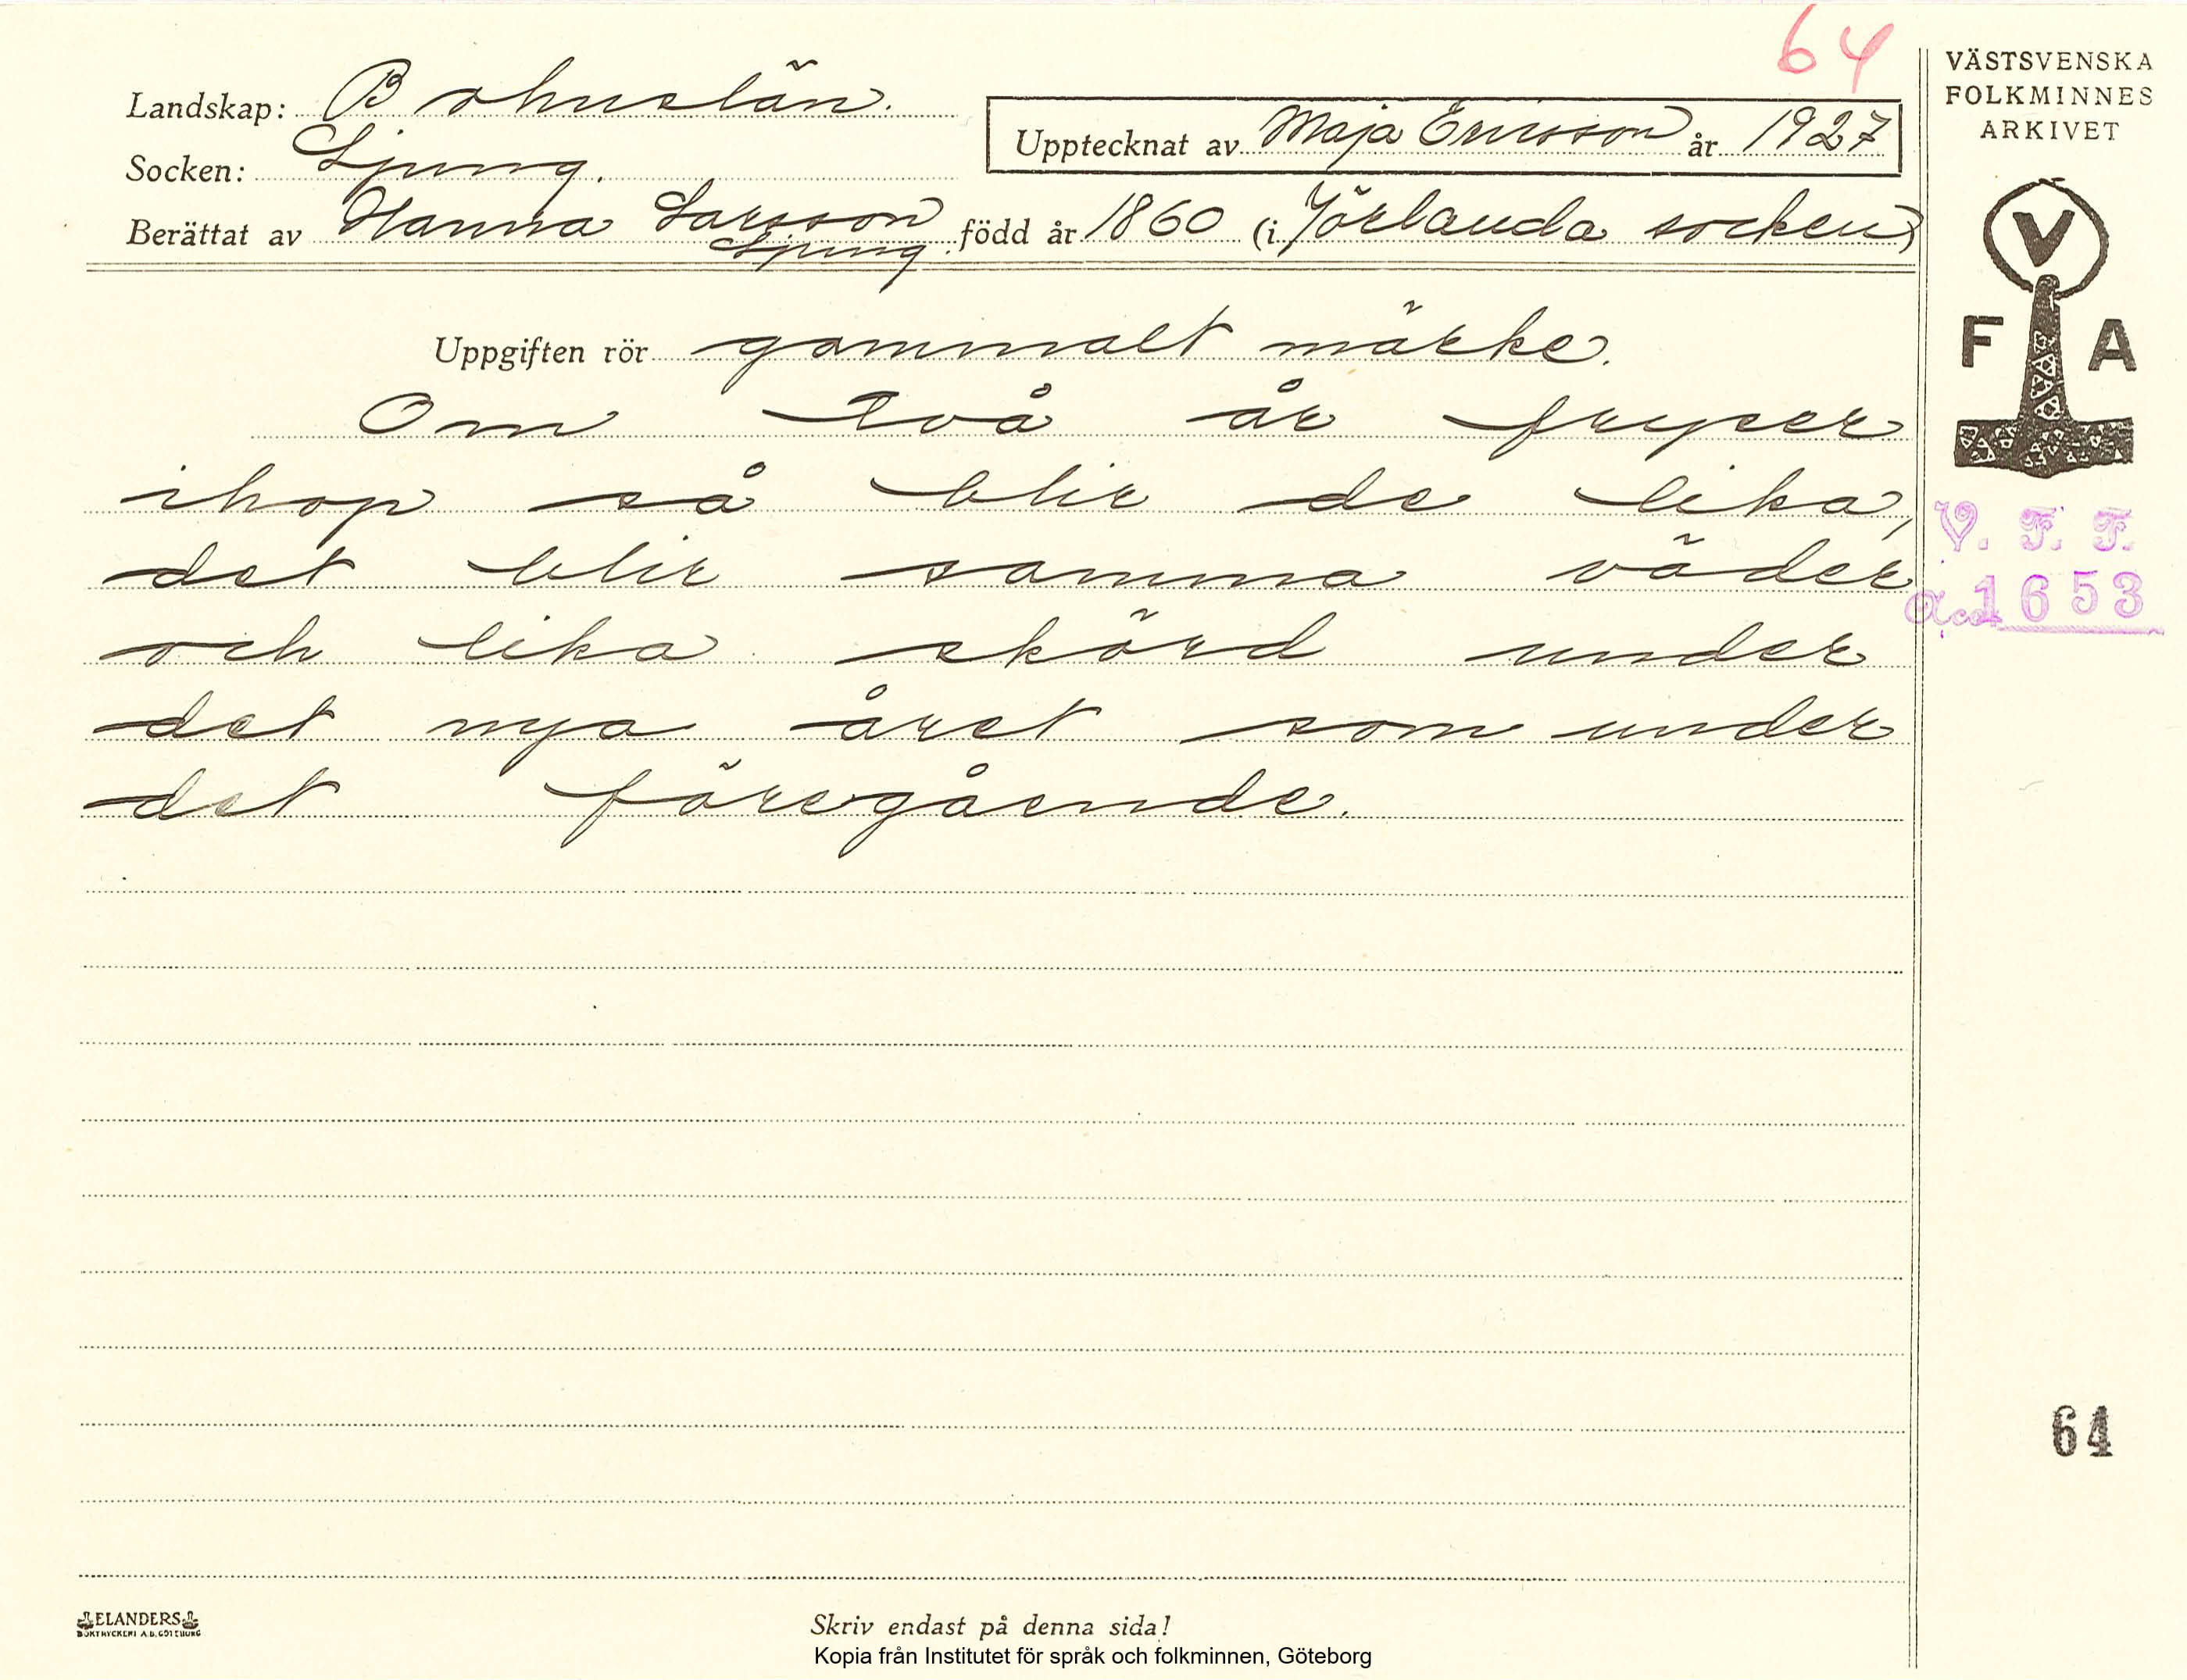 64
Landskap: Bohuslän.
Socken: Ljung.
Upptecknat av Maja Ericsson år 1927
Berättat av Hanna Larsson född år 1860 (i Jörlanda socken)
Ljung.
Uppgiften rör gammalt märke.
Om två år fryser
ihop så blir de lika,
det blir samma väder
och lika skörd under
det nya året som under
det föregående.
VÄSTSVENSKA
FOLKMINNES
ARKIVET
V
F A
V. F. F.
Acc. 1653
64
ELANDERS
BOKTRYCKERI A.B. GÖTEBORG
Skriv endast på denna sida!
Kopia från Institutet för språk och folkminnen, Göteborg